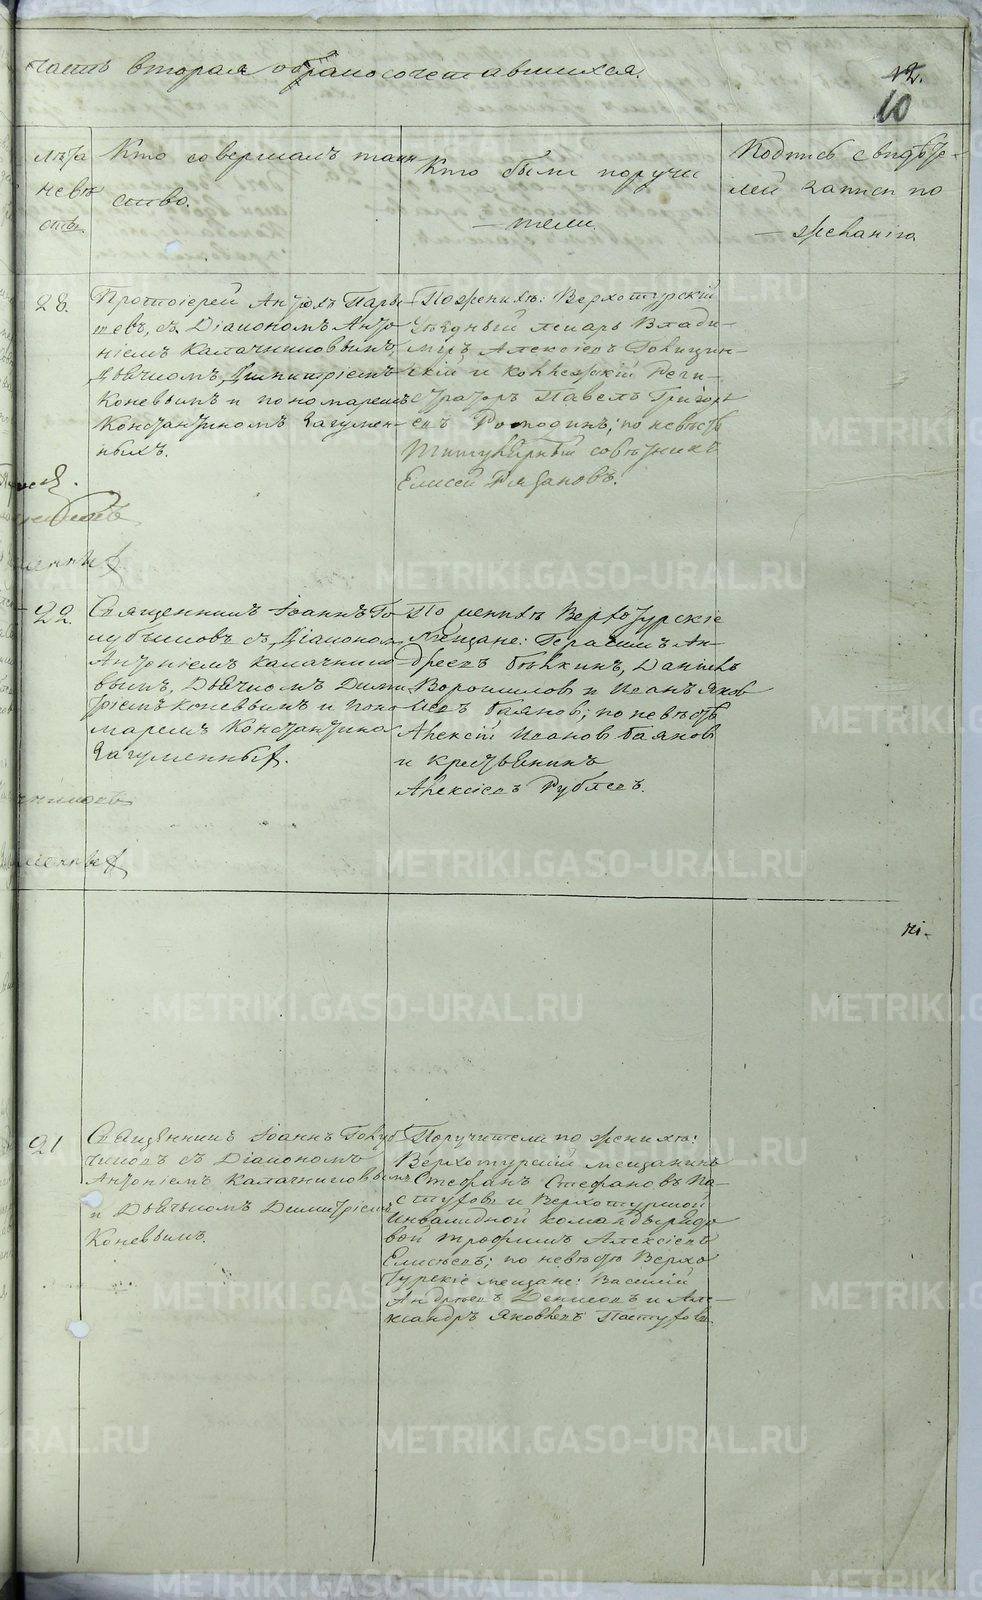 часть вторая о бракосочетавшихся.
12.
10
лѣта
невѣ
сты.
Кто совершалъ таин
ство.
Кто были поручи
– тели.
Подпись свидѣте–
лей записи по
– желанію
28.
Протоіерей
съ Діакономъ Анто
ніемъ Калачниковымъ,
Дьячкомъ Димитріемъ
Коневымъ и пономаремъ
Константиномъ Загумен–
ныхъ.
По женихѣ: Верхотурскій
Уѣздный лекарь Влади–
міръ Алексѣевъ
скій и Коллежскій Реги–
страторъ Павелъ Григорь
евъ по невѣстѣ
Титулярный совѣтникъ
Елисей Рязановъ.
22.
Священникъ Іоаннъ Го
лубчиковъ съ Діакономъ
Антоніемъ Калачнико
вымъ, Дьячкомъ Дими
тріемъ Коневымъ и поно
маремъ Константиномъ
Загуменныхъ.
По женихѣ Верхотурскіе
Мещане: Герасимъ Ан–
дреевъ Даніилъ
Ворошиловъ и Иванъ Яков
левъ Баяновъ; по невѣстѣ
Алексѣй Ивановъ Баяновъ
и крестьянинъ
Алексѣевъ
21
Священникъ Іоаннъ Голуб
чиковъ съ Діакономъ
Антоніемъ Калачниковымъ
и Дьячкомъ Димитріемъ
Коневымъ.
Поручители по женихѣ:
Верхотурскій мещанинъ
Стефанъ Стефановъ Па–
стуховъ и Верхотурской
Инвалидной команды рядо
вой Трофимъ Алексѣевъ
Елисѣевъ; по невѣстѣ Верхо
турскіе мещане: Василій
Андреевъ Денисовъ и Але–
ксандръ Яковлевъ Пастуховъ.
METRIKI.GASO-URAL.RU